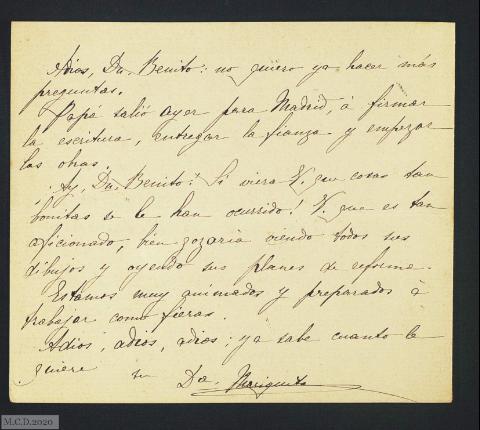 Adios, Dn. Benito: no quiero ya hacer más
preguntas.
Papá salió ayer para Madrid, á firmar
la escritura, entregar la fianza y empezar
las obras.
¡Ay, Dn. Benito! Si viera V. que cosas tan
bonitas se le han ocurrido! V. que es tan
aficionado, bien gozaria viendo todos sus
dibujos y oyendo sus planes de reforma.
Estamos muy animados y preparados á
trabajar como fieras.
Adios, adios, adios; ya sabe cuanto le
quiere su Da. Mariquita
M.C.D.2020